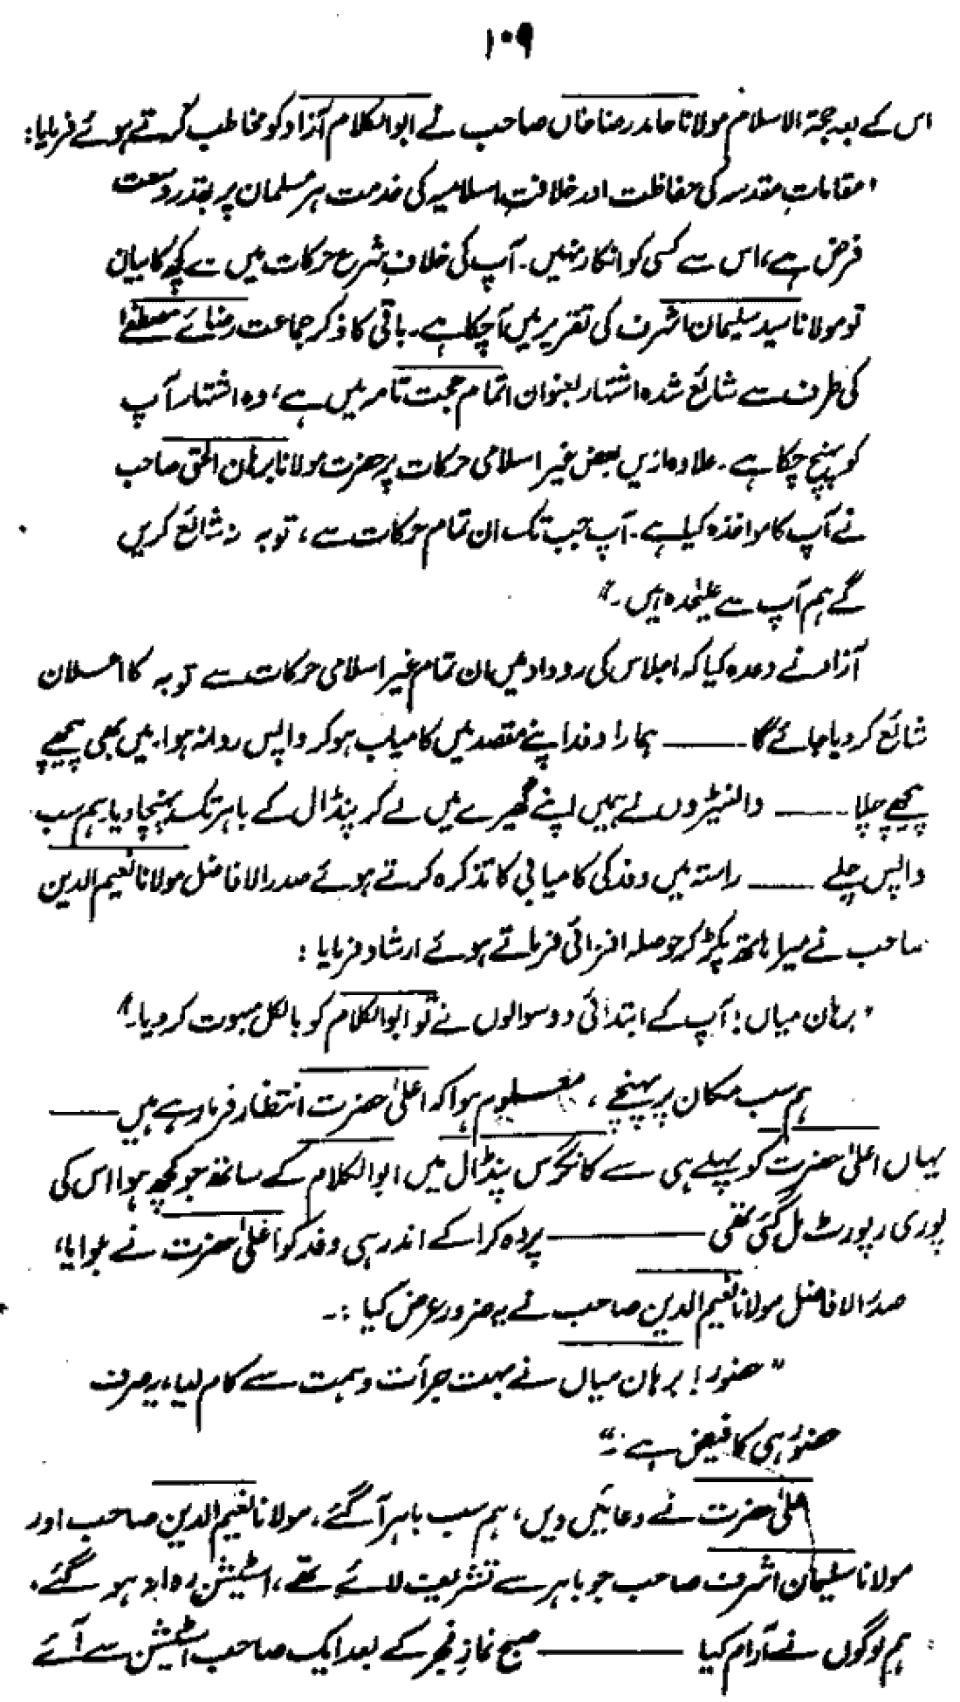 ۱۰۹
اس کے بعد حجۃ الاسلام مولانا حامد رضا خاں صاحب نے ابوالکلام آزاد کو مخاطب کرتے ہوئے فرمایا:
"مقاماتِ مقدسہ کی حفاظت اور خلافتِ اسلامیہ کی خدمت ہر مسلمان پر بقدر وسعت
فرض ہے، اس سے کسی کو انکار نہیں۔ آپ کی خلافِ شرع حرکات میں سے کچھ کا بیان
تو مولانا سید سلیمان اشرف کی تقریر میں آچکا ہے۔ باقی کا ذکر جماعت رضائے مصطفےٰ
کی طرف سے شائع شدہ اشتہار بعنوان اتمام حجت تامہ میں ہے، وہ اشتہار آپ
کو پہنچ چکا ہے۔ علاوہ ازیں بعض غیر اسلامی حرکات پر حضرت مولانا برہان الحق صاحب
نے آپ کا مواخذہ کیا ہے۔ آپ جب تک ان تمام حرکات سے، توبہ نہ شائع کریں
گے ہم آپ سے علیٰحدہ ہیں۔"
آزاد نے وعدہ کیا کہ اجلاس کی روداد میں ان تمام غیر اسلامی حرکات سے توبہ کا اعلان
شائع کر دیا جائے گا ـــــ ہمارا وفد اپنے مقصد میں کامیاب ہوکر واپس روانہ ہوا، میں بھی پیچھے
پیچھے چلا ـــــ والنٹیروں نے ہمیں اپنے گھیرے میں لے کر پنڈال کے باہر تک پہنچا دیا، ہم سب
واپس چلے ـــــ راستہ میں وفد کی کامیابی کا تذکرہ کرتے ہوئے صدر الافاضل مولانا نعیم الدین
صاحب نے میرا ہاتھ پکڑ کر حوصلہ افزائی فرماتے ہوئے ارشاد فرمایا:
"برہان میاں! آپ کے ابتدائی دو سوالوں نے تو ابوالکلام کو بالکل مبہوت کر دیا۔"
ہم سب مکان پر پہنچے، معلوم ہوا کہ اعلیٰ حضرت انتظار فرما رہے ہیں ـــــ
یہاں اعلیٰ حضرت کو پہلے ہی سے کانگرس پنڈال میں ابوالکلام کے ساتھ جو کچھ ہوا اس کی
پوری رپورٹ مل گئی تھی ـــــ پردہ کرا کے اندر ہی وفد کو اعلیٰ حضرت نے بلوایا،
صدر الافاضل مولانا نعیم الدین صاحب نے یہ ضرور عرض کیا :۔
"حضور! برہان میاں نے بہت جرأت و ہمت سے کام لیا، یہ صرف
حضور ہی کا فیض ہے۔"
اعلیٰ حضرت نے دعائیں دیں، ہم سب باہر آگئے، مولانا نعیم الدین صاحب اور
مولانا سلیمان اشرف صاحب جو باہر سے تشریف لائے تھے، اسٹیشن روانہ ہو گئے،
ہم لوگوں نے آرام کیا ـــــ صبح نمازِ فجر کے بعد ایک صاحب اسٹیشن سے آئے